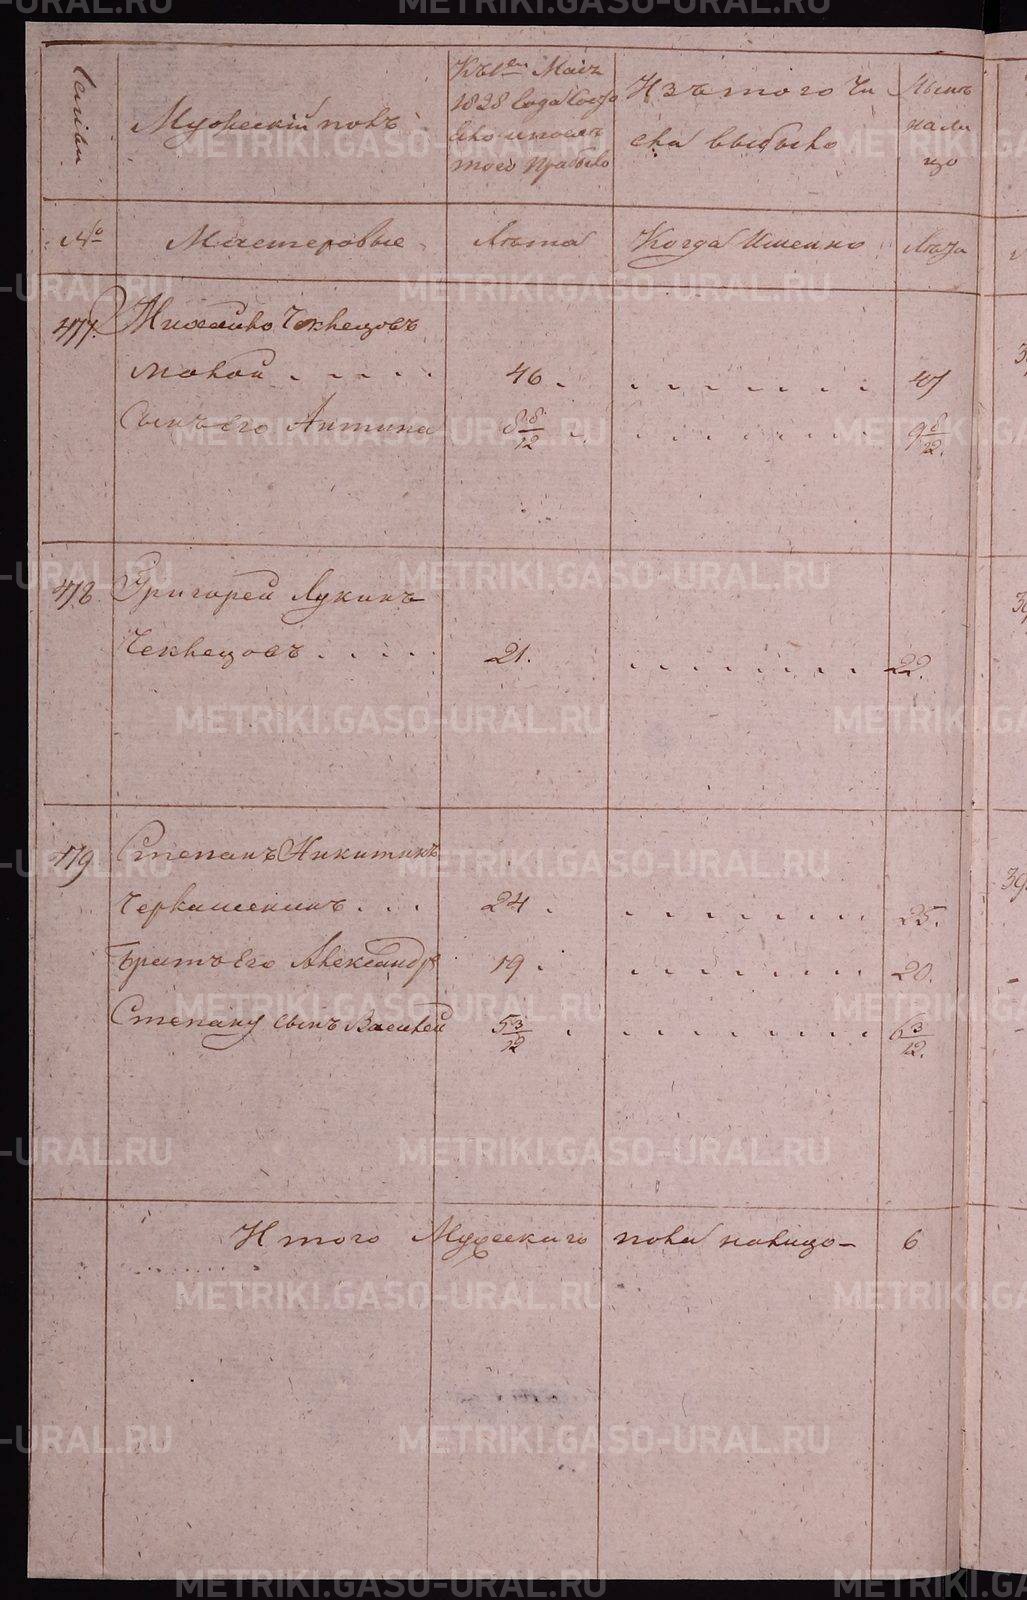 Семьи
Мужескiй полъ
Къ 1е Маiя
1828 года состо
яло и после
того прибыло
Изъ того чи
сла выбыло
Нынѣ
нали
цо
№
Мастеровые
Лѣта
Когда Именно
Лѣта
477. Михайло Чеклецовъ
малой . . . . . 46 . . . . . . . . 47
Сынъ его Антипа 8 8/12 . . . . . . . . 9 8/12.
478. Григорей Лукинъ
Чеклецовъ . . . . . 21. . . . . . . . . 22.
479 Степанъ Никитинъ
Черкашенинъ . . . 24 . . . . . . . . 25.
Братъ его Александръ 19 . . . . . . . . . 20.
Степану сынъ Василей 5 3/12 . . . . . . . . . 6 3/12.
Итого Мужескаго пола налицо — 6
METRIKI.GASO-URAL.RU